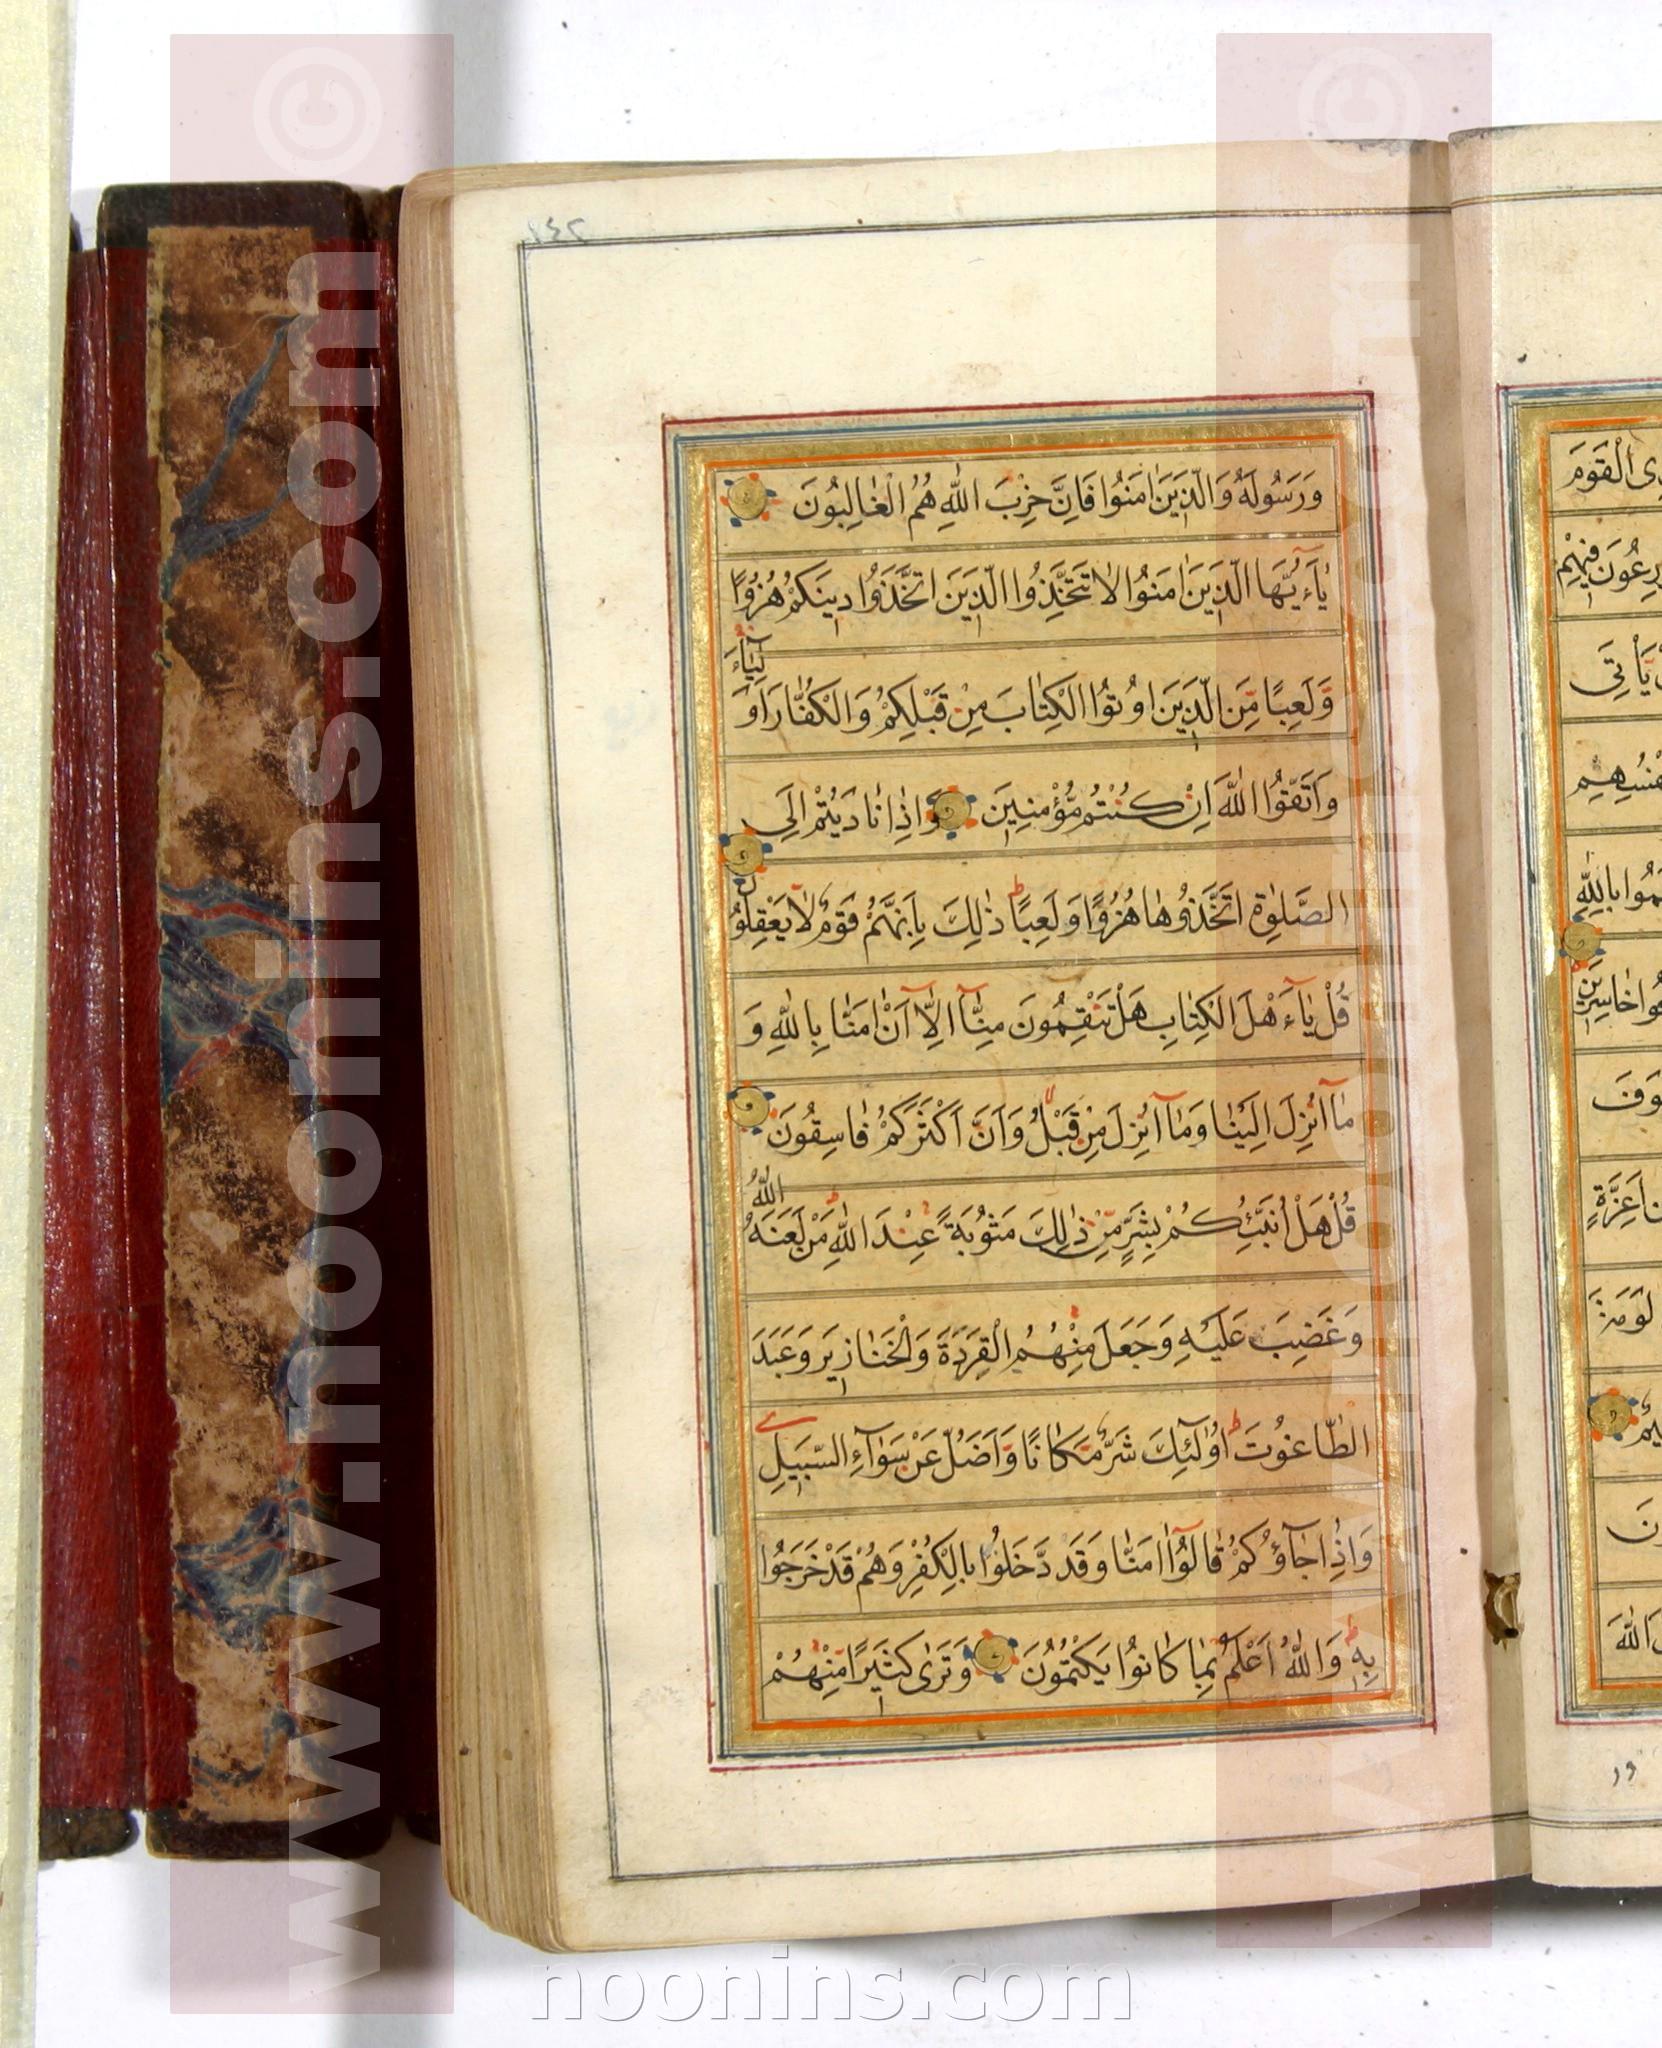 ١٤٢
وَرَسُولَهُ وَالَّذِينَ اٰمَنُوا فَاِنَّ حِزْبَ اللّٰهِ هُمُ الْغٰالِبُونَ
يٰٓاَءَيُّهَا الَّذِينَ اٰمَنُوا لٰا تَتَّخِذُوا الَّذِينَ اتَّخَذُوا دِينَكُمْ هُزُوًا
وَلَعِبًا مِّنَ الَّذِينَ اوُتُوا الْكِتٰابَ مِنْ قَبْلِكُمْ وَالْكُفّٰارَ اَوْ
لِيٰٓاءَ
وَاتَّقُوا اللّٰهَ اِنْ كُنْتُمْ مُّؤْمِنِينَ وَاِذٰا نٰادَيْتُمْ اِلَى
الصَّلٰوةِ اتَّخَذُوهٰا هُزُوًا وَلَعِبًا ذٰلِكَ بِاَنَّهُمْ قَوْمٌ لٰا يَعْقِلُو
نَ
قُلْ يٰٓاءَهْلَ الْكِتٰابِ هَلْ تَنْقِمُونَ مِنّٰٓا اِلّٰٓا اَنْ اٰمَنّٰا بِاللّٰهِ وَ
مٰٓا اُنْزِلَ اِلَيْنٰا وَمٰٓا اُنْزِلَ مِنْ قَبْلُ وَاَنَّ اَكْثَرَكُمْ فٰاسِقُونَ
قُلْ هَلْ اُنَبِّئُكُمْ بِشَرٍّ مِّنْ ذٰلِكَ مَثُوبَةً عِنْدَ اللّٰهِ مَنْ لَعَنَهُ
اللّٰهُ
وَغَضِبَ عَلَيْهِ وَجَعَلَ مِنْهُمُ الْقِرَدَةَ وَالْخَنٰازِيرَ وَعَبَدَ
الطّٰاغُوتَ اُولٰٓئِكَ شَرٌّ مَّكٰانًا وَاَضَلُّ عَنْ سَوٰٓاءِ السَّبِيلِ
وَاِذٰا جٰٓاؤُكُمْ قٰالُوٓا اٰمَنّٰا وَقَدْ دَّخَلُوا بِالْكُفْرِ وَهُمْ قَدْ خَرَجُوا
بِهِ وَاللّٰهُ اَعْلَمُ بِمٰا كٰانُوا يَكْتُمُونَ وَتَرٰى كَثِيرًا مِّنْهُمْ
ى الْقَوْمَ
رِعُونَ فِيهِمْ
يَأْتِىَ
بِاللّٰهِ
خٰاسِرِينَ
اَعِزَّةٍ
لَوْمَةَ
اللّٰهَ
www.noonins.com ©
www.noonins.com ©
noonins.com